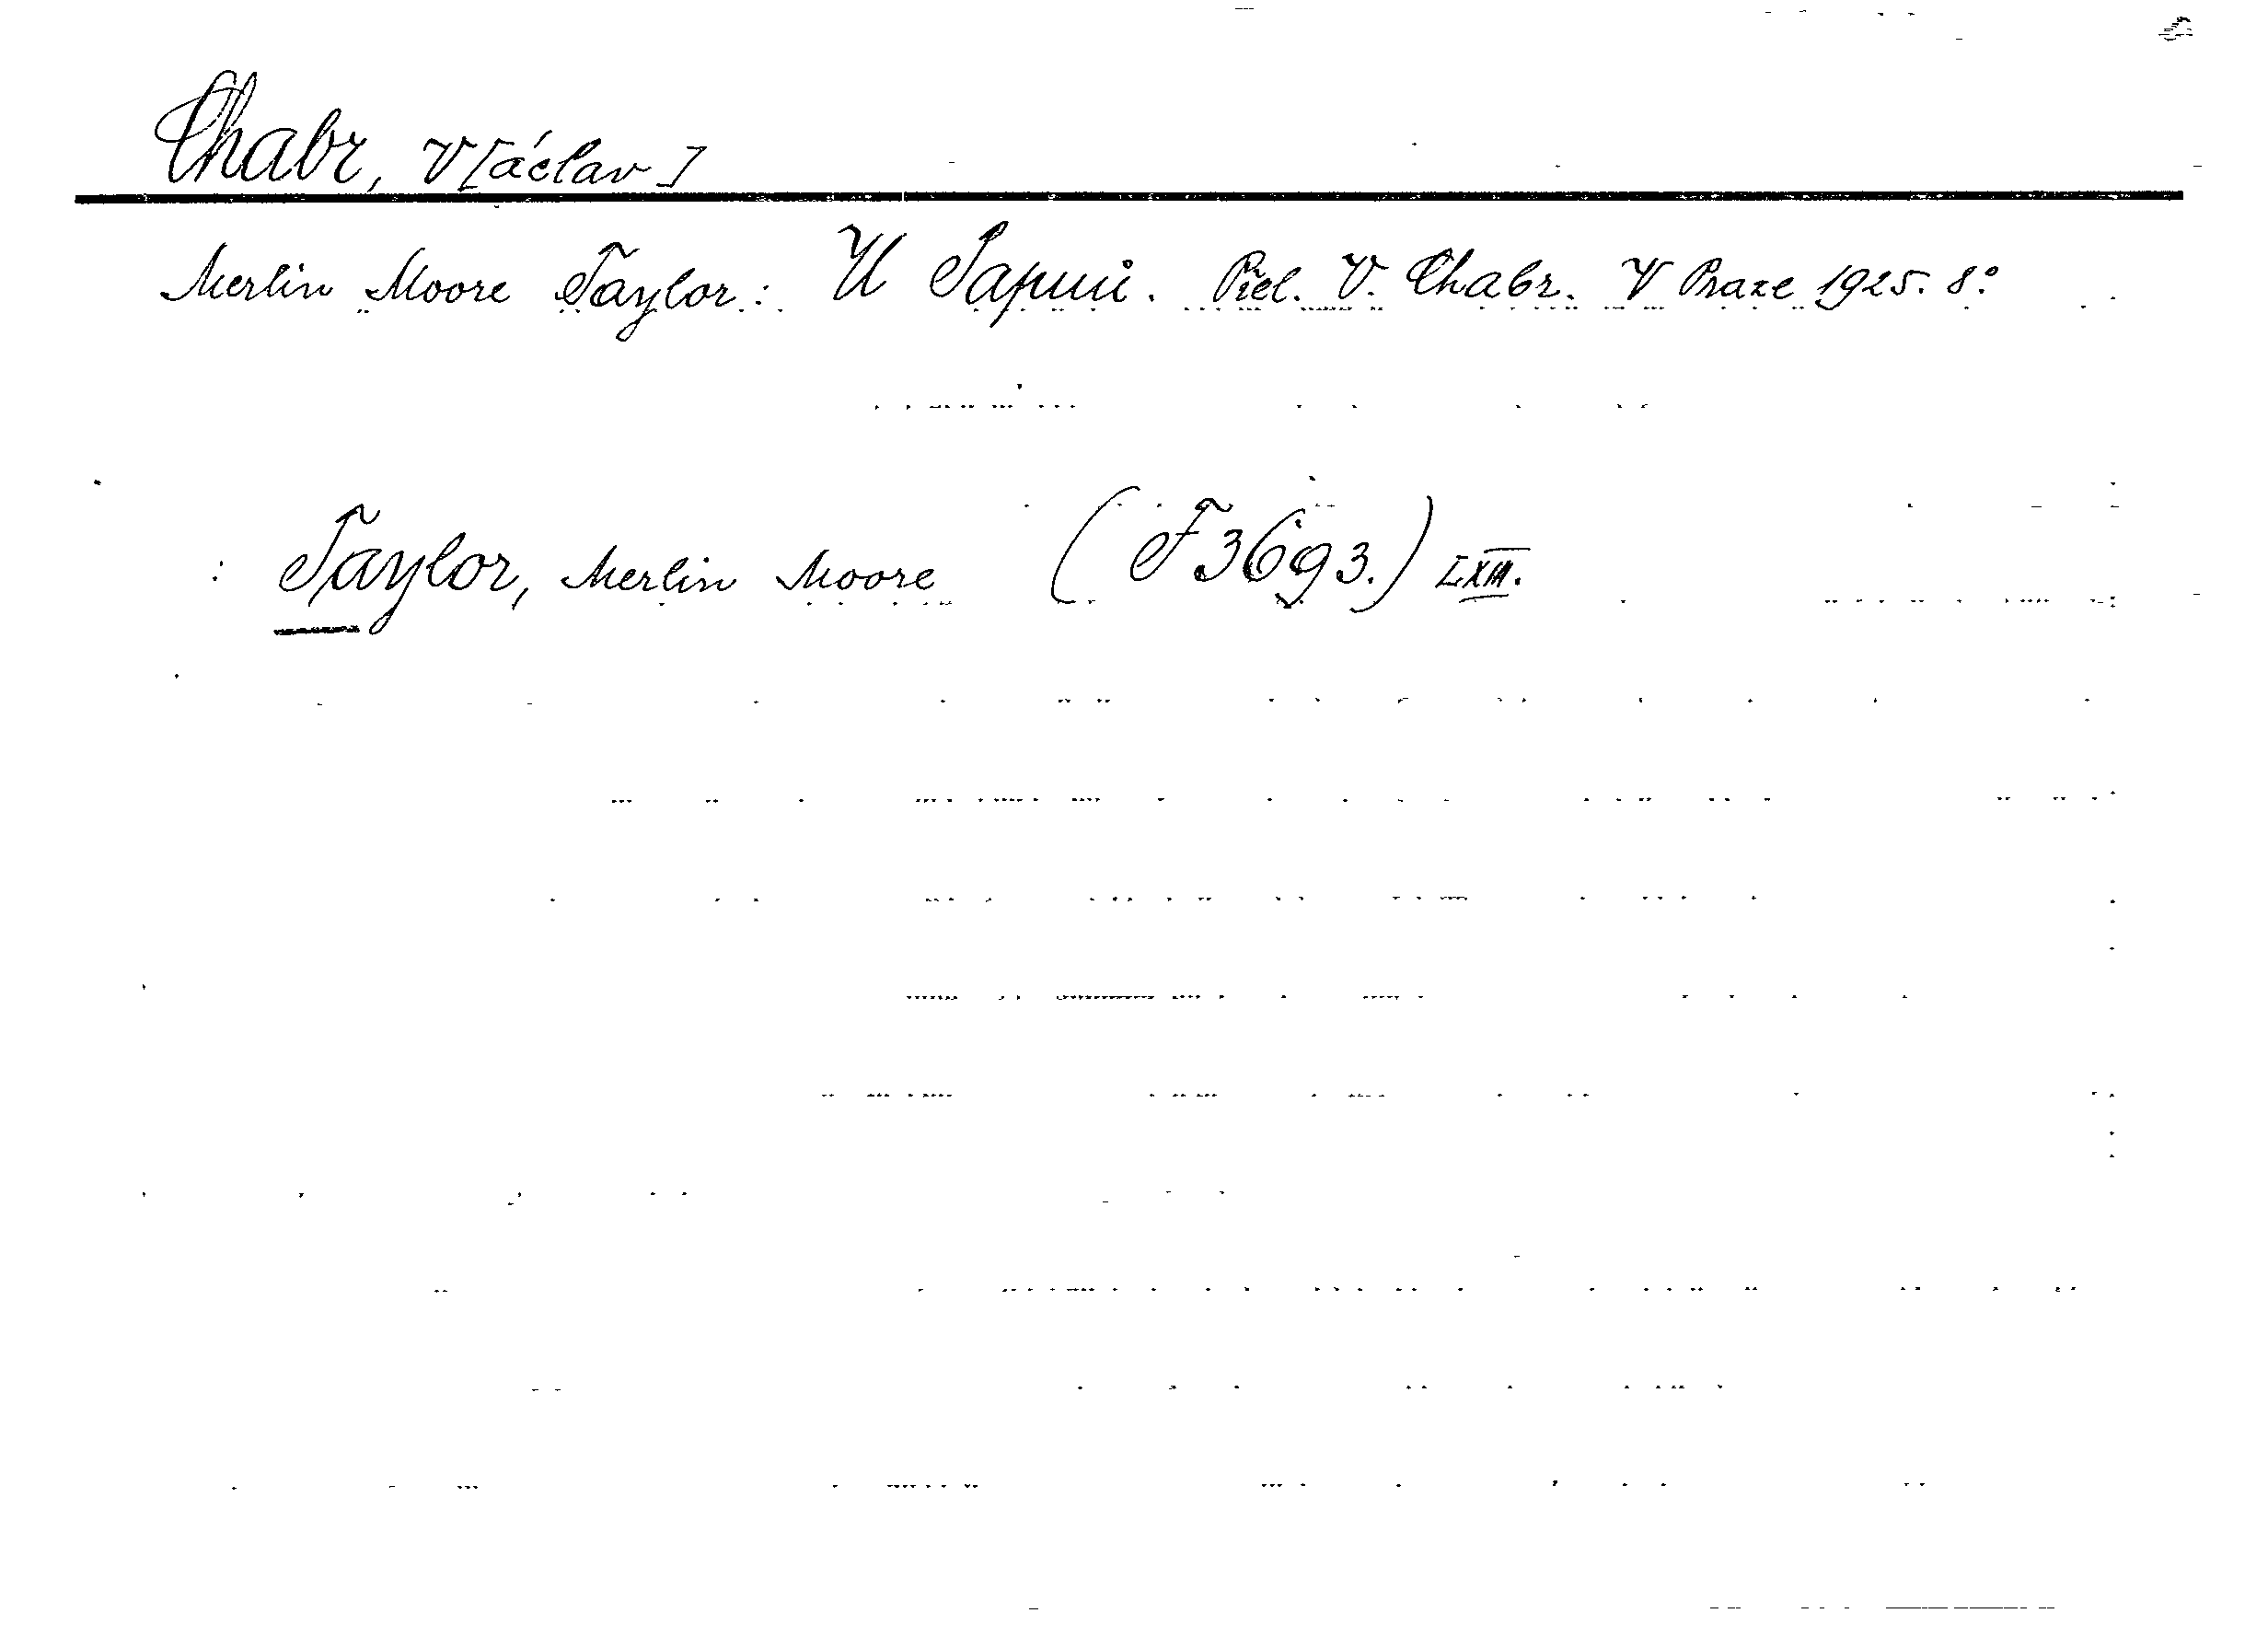 Chabr, V[áclav]
Merlin Moore Taylor: U Papuů. Přel. V. Chabr. V Praze 1925. 8°
: Taylor, Merlin Moore (F 3693.) LXIII.